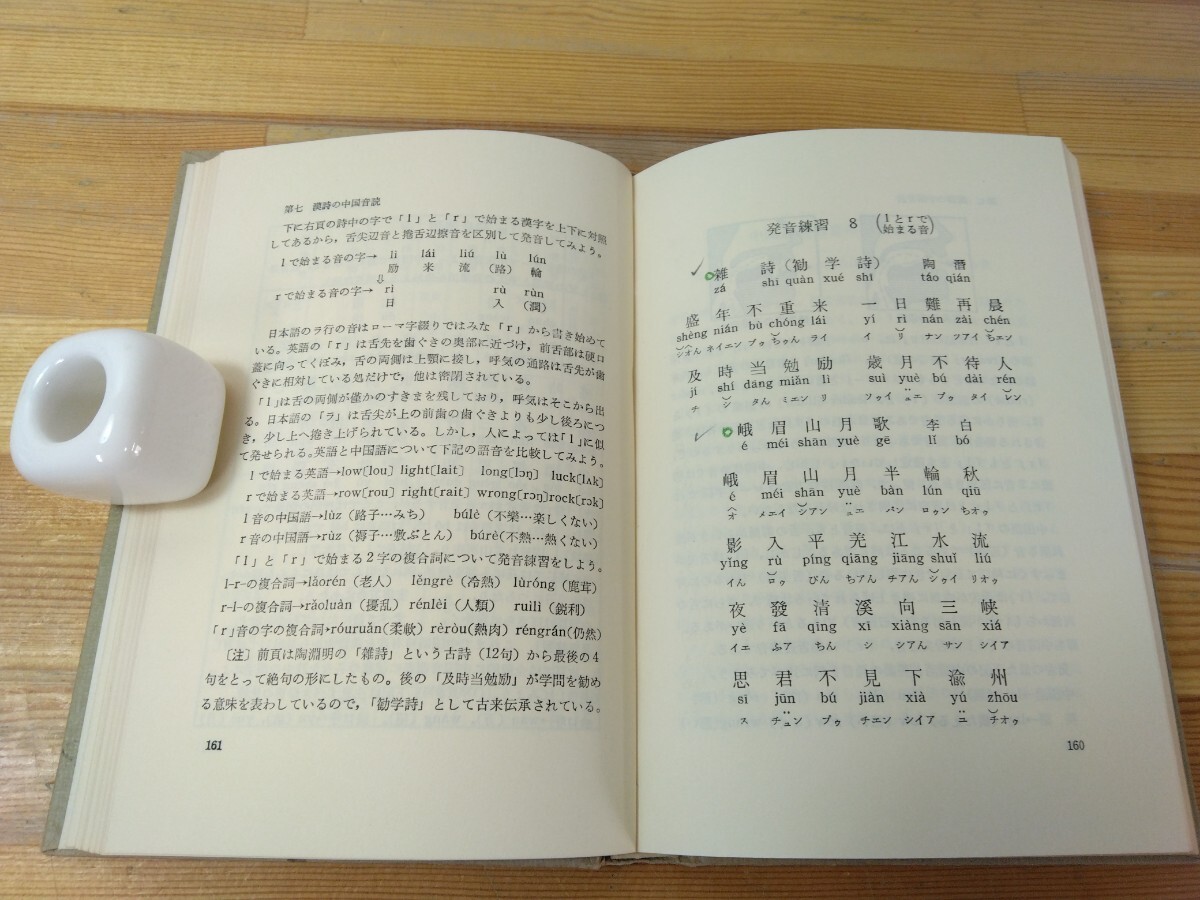 発音練習 8 (lとrで始まる音)
雑 詩(勧 学 詩) 陶 潛
zá shī quàn xué shī táo qián
盛 年 不 重 来 一 日 難 再 晨
shèng nián bù chóng lái yí rì nán zài chén
及 時 当 勉 励 歳 月 不 待 人
jí shí dāng miǎn lì suì yuè bú dài rén
峨 眉 山 月 歌 李 白
é méi shān yuè gē lǐ bó
峨 眉 山 月 半 輪 秋
é méi shān yuè bàn lún qiū
オ メエイ シアン ュエ パン ロゥン ちオゥ
影 入 平 羌 江 水 流
yǐng rù píng qiāng jiāng shuǐ liú
イん ロゥ ぴん ちアん チアん シゥイ リオゥ
夜 發 清 溪 向 三 峡
yè fā qīng xī xiàng sān xiá
イエ ふア ちん シ シアん サン シイア
思 君 不 見 下 渝 州
sī jūn bú jiàn xià yú zhōu
ス チュン プゥ チエン シイア ユ チオゥ
160
第七 漢詩の中国音読
下に右頁の詩中の字で「l」と「r」で始まる漢字を上下に対照
してあるから,舌尖辺音と捲舌辺擦音を区別して発音してみよう。
lで始まる音の字→ lì lái liú lù lún
励 来 流 (路) 輪
⇩
rで始まる音の字→ rì rù rùn
日 入 (潤)
日本語のラ行の音はローマ字綴りではみな「r」から書き始めて
いる。英語の「r」は舌先を歯ぐきの奥部に近づけ,前舌部は硬口
蓋に向ってくぼみ,舌の両側は上顎に接し,呼気の通路は舌先が歯
ぐきに相対している処だけで,他は密閉されている。
「l」は舌の両側が僅かのすきまを残しており,呼気はそこから出
る。日本語の「ラ」は舌尖が上の前歯の歯ぐきよりも少し後ろにつ
き,少し上へ捲き上げられている。しかし,人によっては「l」に似
て発せられる。英語と中国語について下記の語音を比較してみよう。
lで始まる英語→low[lou] light[lait] long[lɔŋ] luck[lʌk]
rで始まる英語→row[rou] right[rait] wrong[rɔŋ] rock[rɔk]
l音の中国語→lùz (路子…みち) búlè (不樂…楽しくない)
r音の中国語→rùz (褥子…敷ぶとん) búrè(不熱…熱くない)
「l」と「r」で始まる2字の複合詞について発音練習をしよう。
l-r-の複合詞→lǎorén (老人) lěngrè (冷熱) lùróng (鹿茸)
r-l-の複合詞→rǎoluàn (擾乱) rénlèi (人類) ruìlì (鋭利)
「r」音の字の複合詞→róuruǎn(柔軟) rèròu(熱肉) réngrán(仍然)
〔注〕前頁は陶淵明の「雑詩」という古詩(12句)から最後の4
句をとって絶句の形にしたもの。後の「及時当勉励」が学問を勧め
る意味を表わしているので,「勧学詩」として古来伝承されている。
161